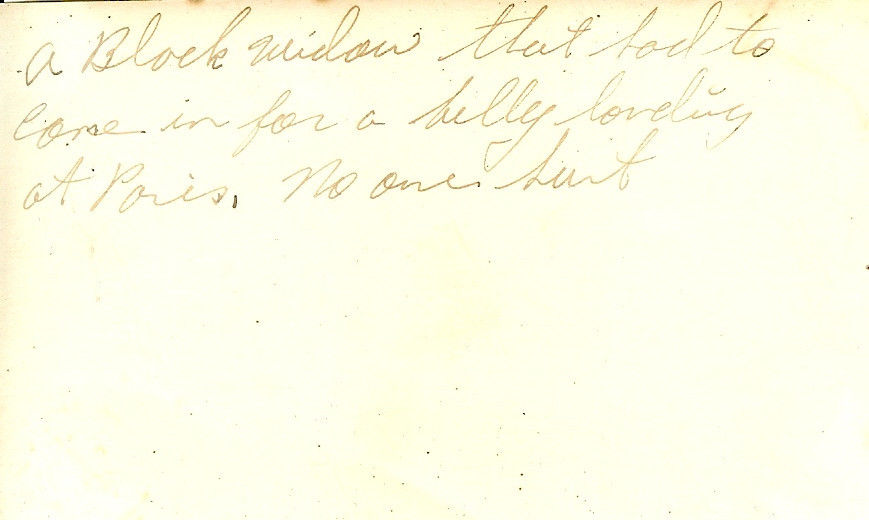 a Black widow that had to
come in for a belly landing
at Paris. No one hurt